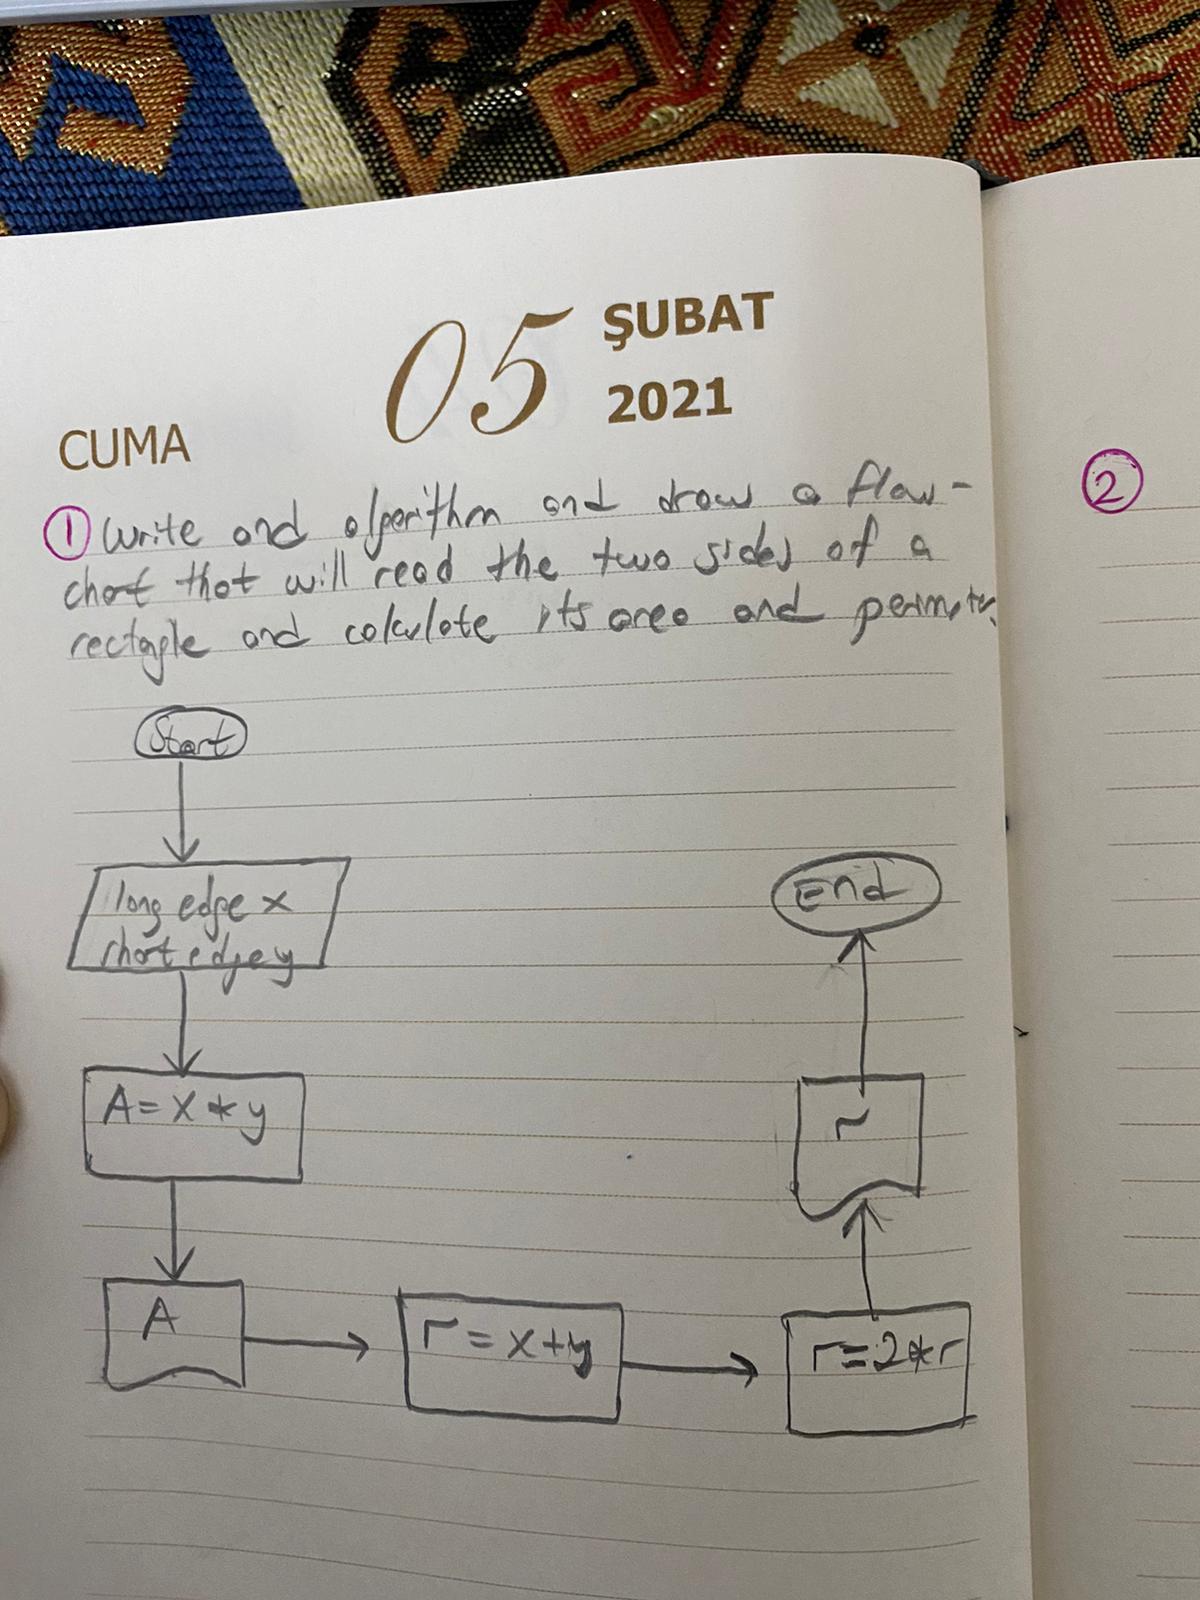 05 ŞUBAT
2021
CUMA
① Write and algorithm and draw a flow-
chart that will read the two sides of a
rectagle and calculate its area and perimeter.
②
Start
long edge x
short edge y
A=x*y
A
r=x+y
r=2*r
r
End